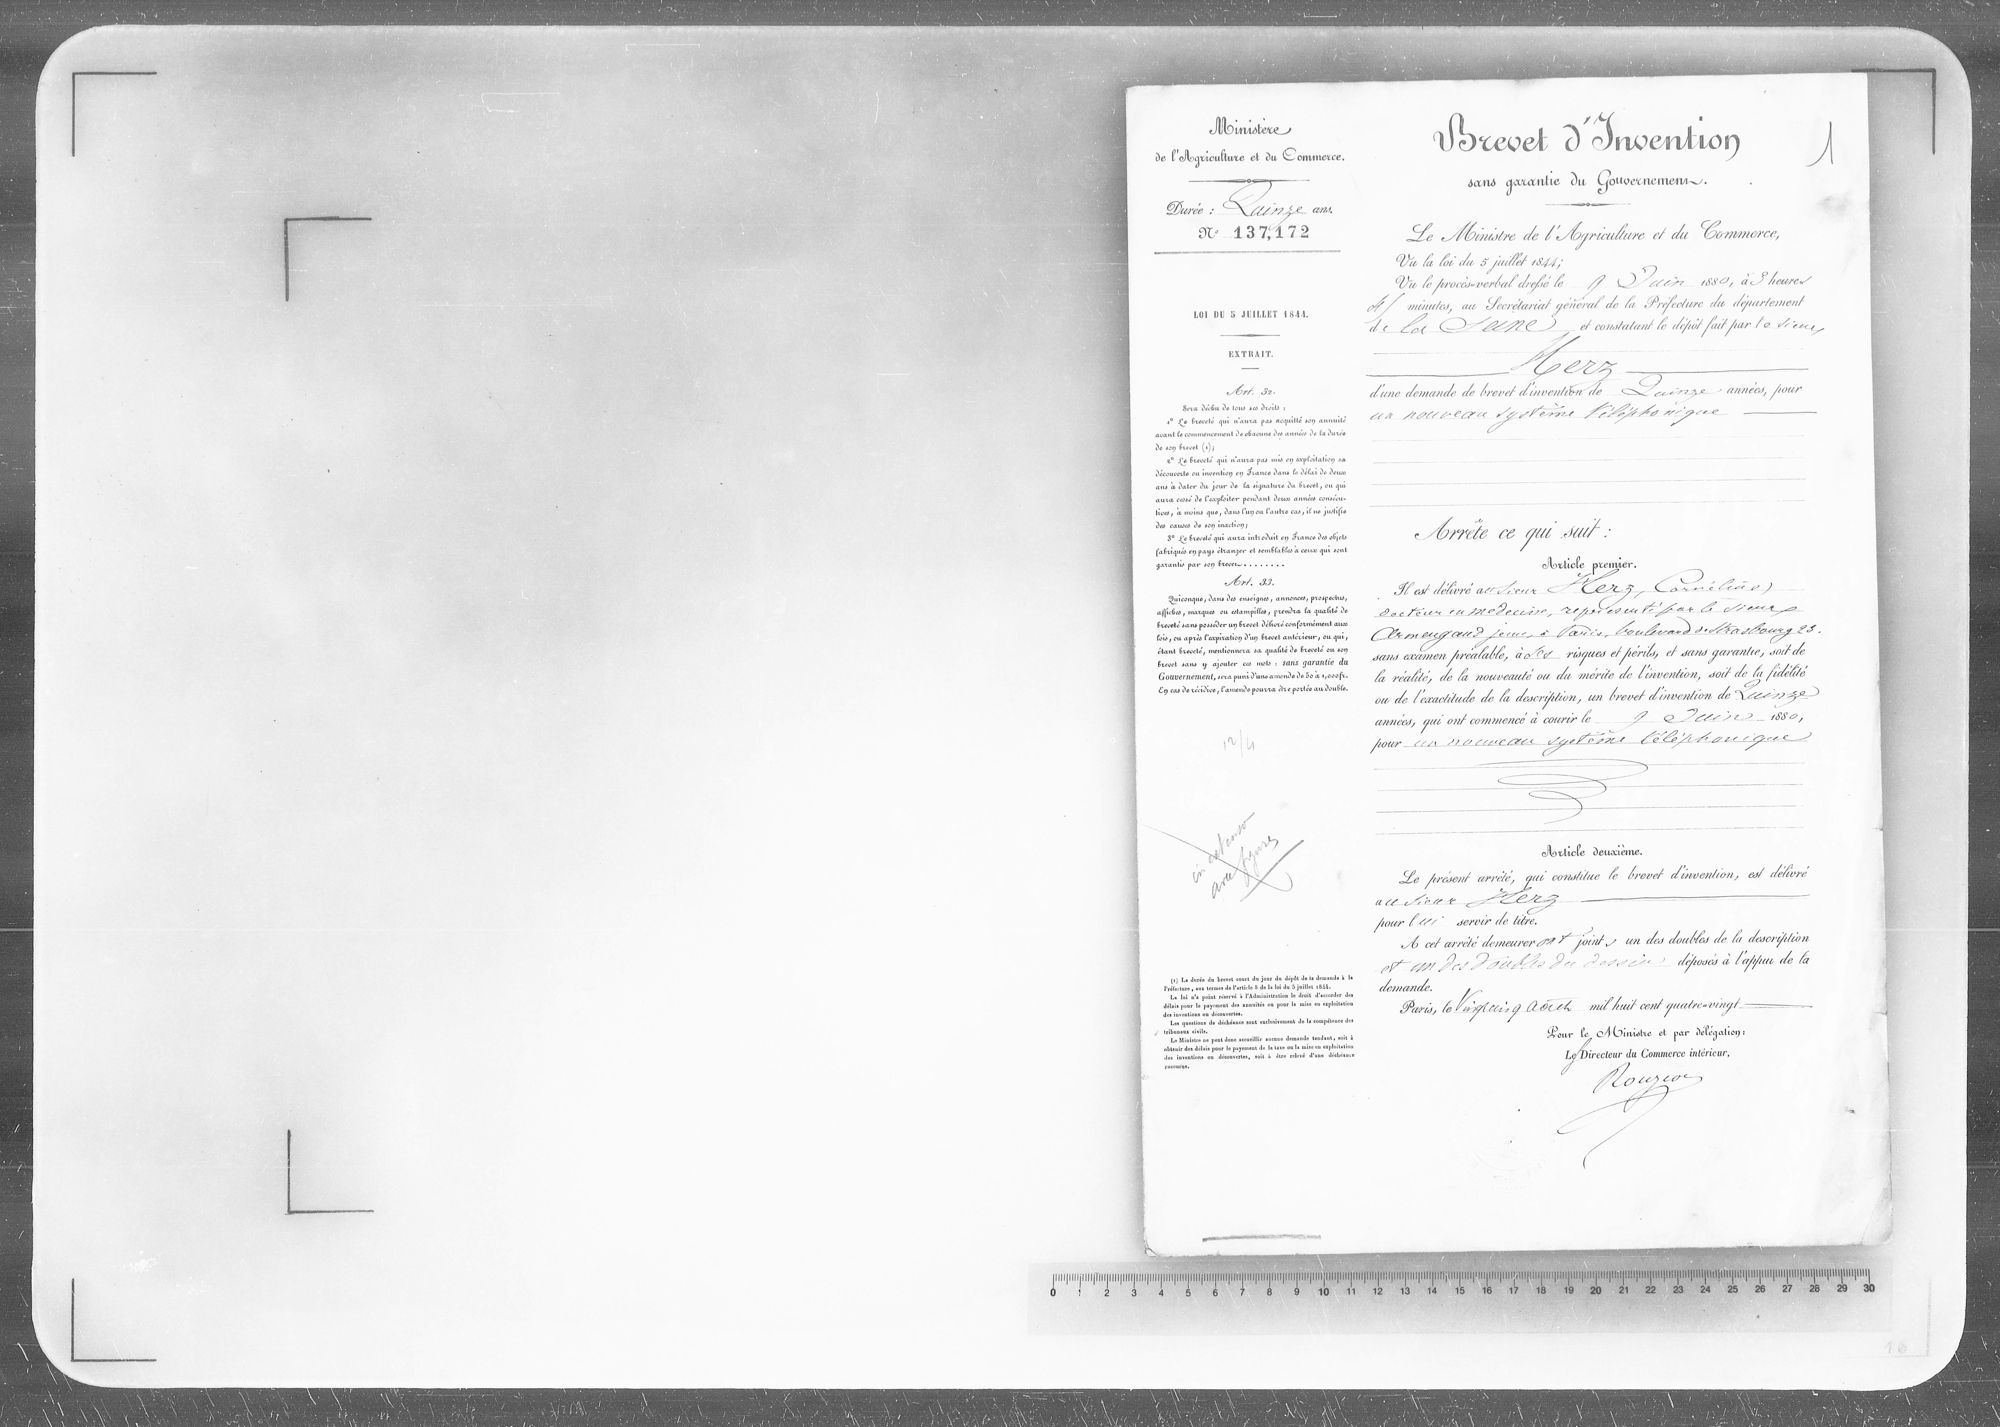 Ministère
de l'Agriculture et du Commerce.
Durée : Quinze ans.
N° 137,172
LOI DU 5 JUILLET 1844.
EXTRAIT.
Art. 32.
Sera déchu de tous ses droits :
1° Le breveté qui n'aura pas acquitté son annuité
avant le commencement de chacune des années de la durée
de son brevet (1);
2° Le breveté qui n'aura pas mis en exploitation sa
découverte ou invention en France dans le délai de deux
ans à dater du jour de la signature du brevet, ou qui
aura cessé de l'exploiter pendant deux années consécu-
tives, à moins que, dans l'un ou l'autre cas, il ne justifie
des causes de son inaction;
3° Le breveté qui aura introduit en France des objets
fabriqués en pays étranger et semblables à ceux qui sont
garantis par son brevet........
Art. 33.
Quiconque, dans des enseignes, annonces, prospectus,
affiches, marques ou estampilles, prendra la qualité de
breveté sans posséder un brevet délivré conformément aux
lois, ou après l'expiration d'un brevet antérieur, ou qui,
étant breveté, mentionnera sa qualité de breveté ou son
brevet sans y ajouter ces mots : sans garantie du
Gouvernement, sera puni d'une amende de 50 à 1,000 fr.
En cas de récidive, l'amende pourra être portée au double.
12/4
in extenso
avec figures
(1) La durée du brevet court du jour du dépôt de la demande à la
Préfecture, aux termes de l'article 8 de la loi du 5 juillet 1844.
La loi n'a point réservé à l'Administration le droit d'accorder des
délais pour le payement des annuités ou pour la mise en exploitation
des inventions ou découvertes.
Les questions de déchéance sont exclusivement de la compétence des
tribunaux civils.
Le Ministre ne peut donc accueillir aucune demande tendant, soit à
obtenir des délais pour le payement de la taxe ou la mise en exploitation
des inventions ou découvertes, soit à être relevé d'une déchéance
encourue.
Brevet d'Invention
1
sans garantie du Gouvernement.
Le Ministre de l'Agriculture et du Commerce,
Vu la loi du 5 juillet 1844;
Vu le procès-verbal dressé le 9 Juin 1880, à 3 heures
minutes, au Secrétariat général de la Préfecture du département
de la Seine, et constatant le dépôt fait par le sieur
Herz
d'une demande de brevet d'invention de Quinze années, pour
un nouveau système téléphonique
Arrête ce qui suit :
Article premier.
Il est délivré au sieur Herz, (Cornélius)
docteur en médecine, représenté par le sieur
Armengaud jeune, à Paris, boulevard de Strasbourg 23.
sans examen préalable, à ses risques et périls, et sans garantie, soit de
la réalité, de la nouveauté ou du mérite de l'invention, soit de la fidélité
ou de l'exactitude de la description, un brevet d'invention de Quinze
années, qui ont commencé à courir le 9 Juin 1880,
pour un nouveau système téléphonique
Article deuxième.
Le présent arrêté, qui constitue le brevet d'invention, est délivré
au sieur Herz
pour lui servir de titre.
A cet arrêté demeureront joints un des doubles de la description
et un des doubles du dessin déposés à l'appui de la
demande.
Paris, le Vingt cinq août mil huit cent quatre-vingt
Pour le Ministre et par délégation:
Le Directeur du Commerce intérieur,
0 1 2 3 4 5 6 7 8 9 10 11 12 13 14 15 16 17 18 19 20 21 22 23 24 25 26 27 28 29 30